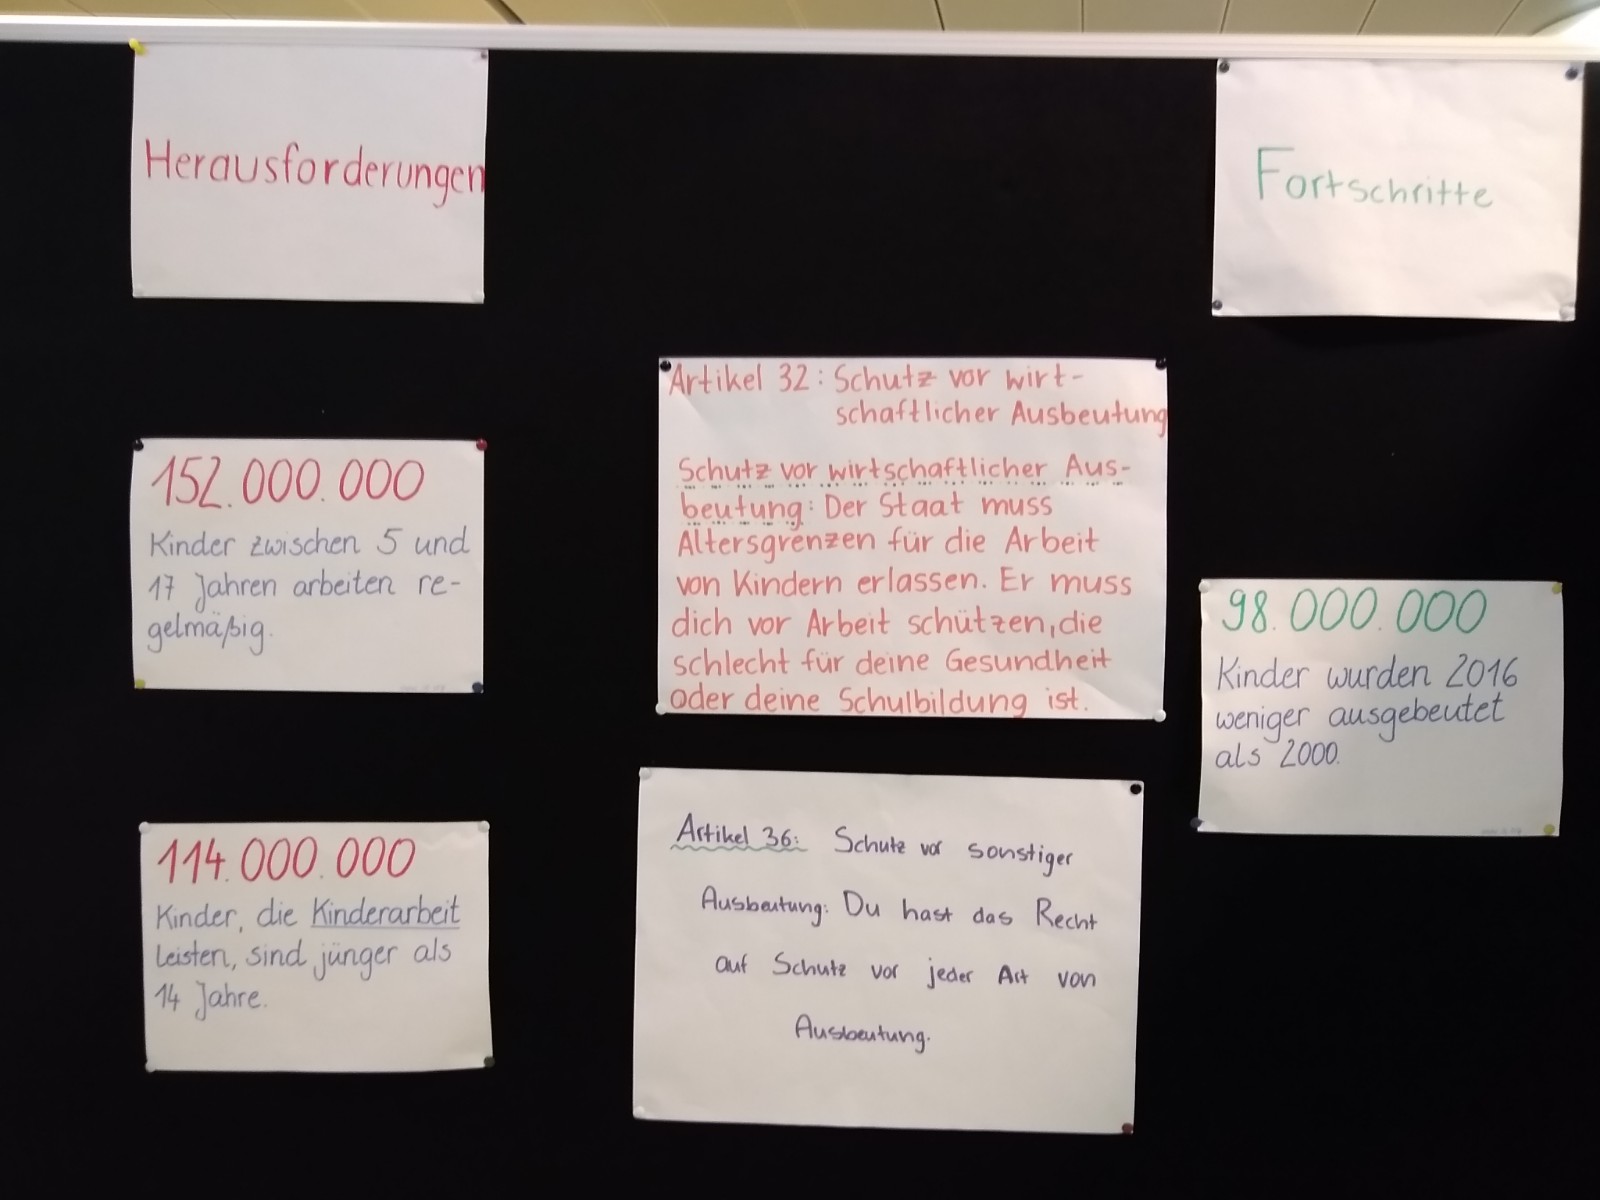 Herausforderungen
152.000.000
Kinder zwischen 5 und
17 Jahren arbeiten re-
gelmäßig.
114.000.000
Kinder, die Kinderarbeit
leisten, sind jünger als
14 Jahre.
Artikel 32: Schutz vor wirt-
schaftlicher Ausbeutung
Schutz vor wirtschaftlicher Aus-
beutung: Der Staat muss
Altersgrenzen für die Arbeit
von Kindern erlassen. Er muss
dich vor Arbeit schützen, die
schlecht für deine Gesundheit
oder deine Schulbildung ist.
Artikel 36: Schutz vor sonstiger
Ausbeutung: Du hast das Recht
auf Schutz vor jeder Art von
Ausbeutung.
Fortschritte
98.000.000
Kinder wurden 2016
weniger ausgebeutet
als 2000.